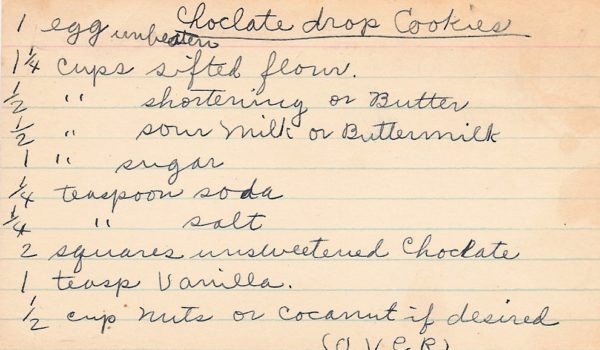 Choclate drop Cookies
1 egg unbeaten
1 1/4 cups sifted flour.
1/2 " shortening or Butter
1/2 " sour Milk or Buttermilk
1 " sugar
1/4 teaspoon soda
1/4 " salt
2 squares unsweetened Choclate
1 teasp Vanilla.
1/2 cup nuts or Cocanut if desired
(OVER)